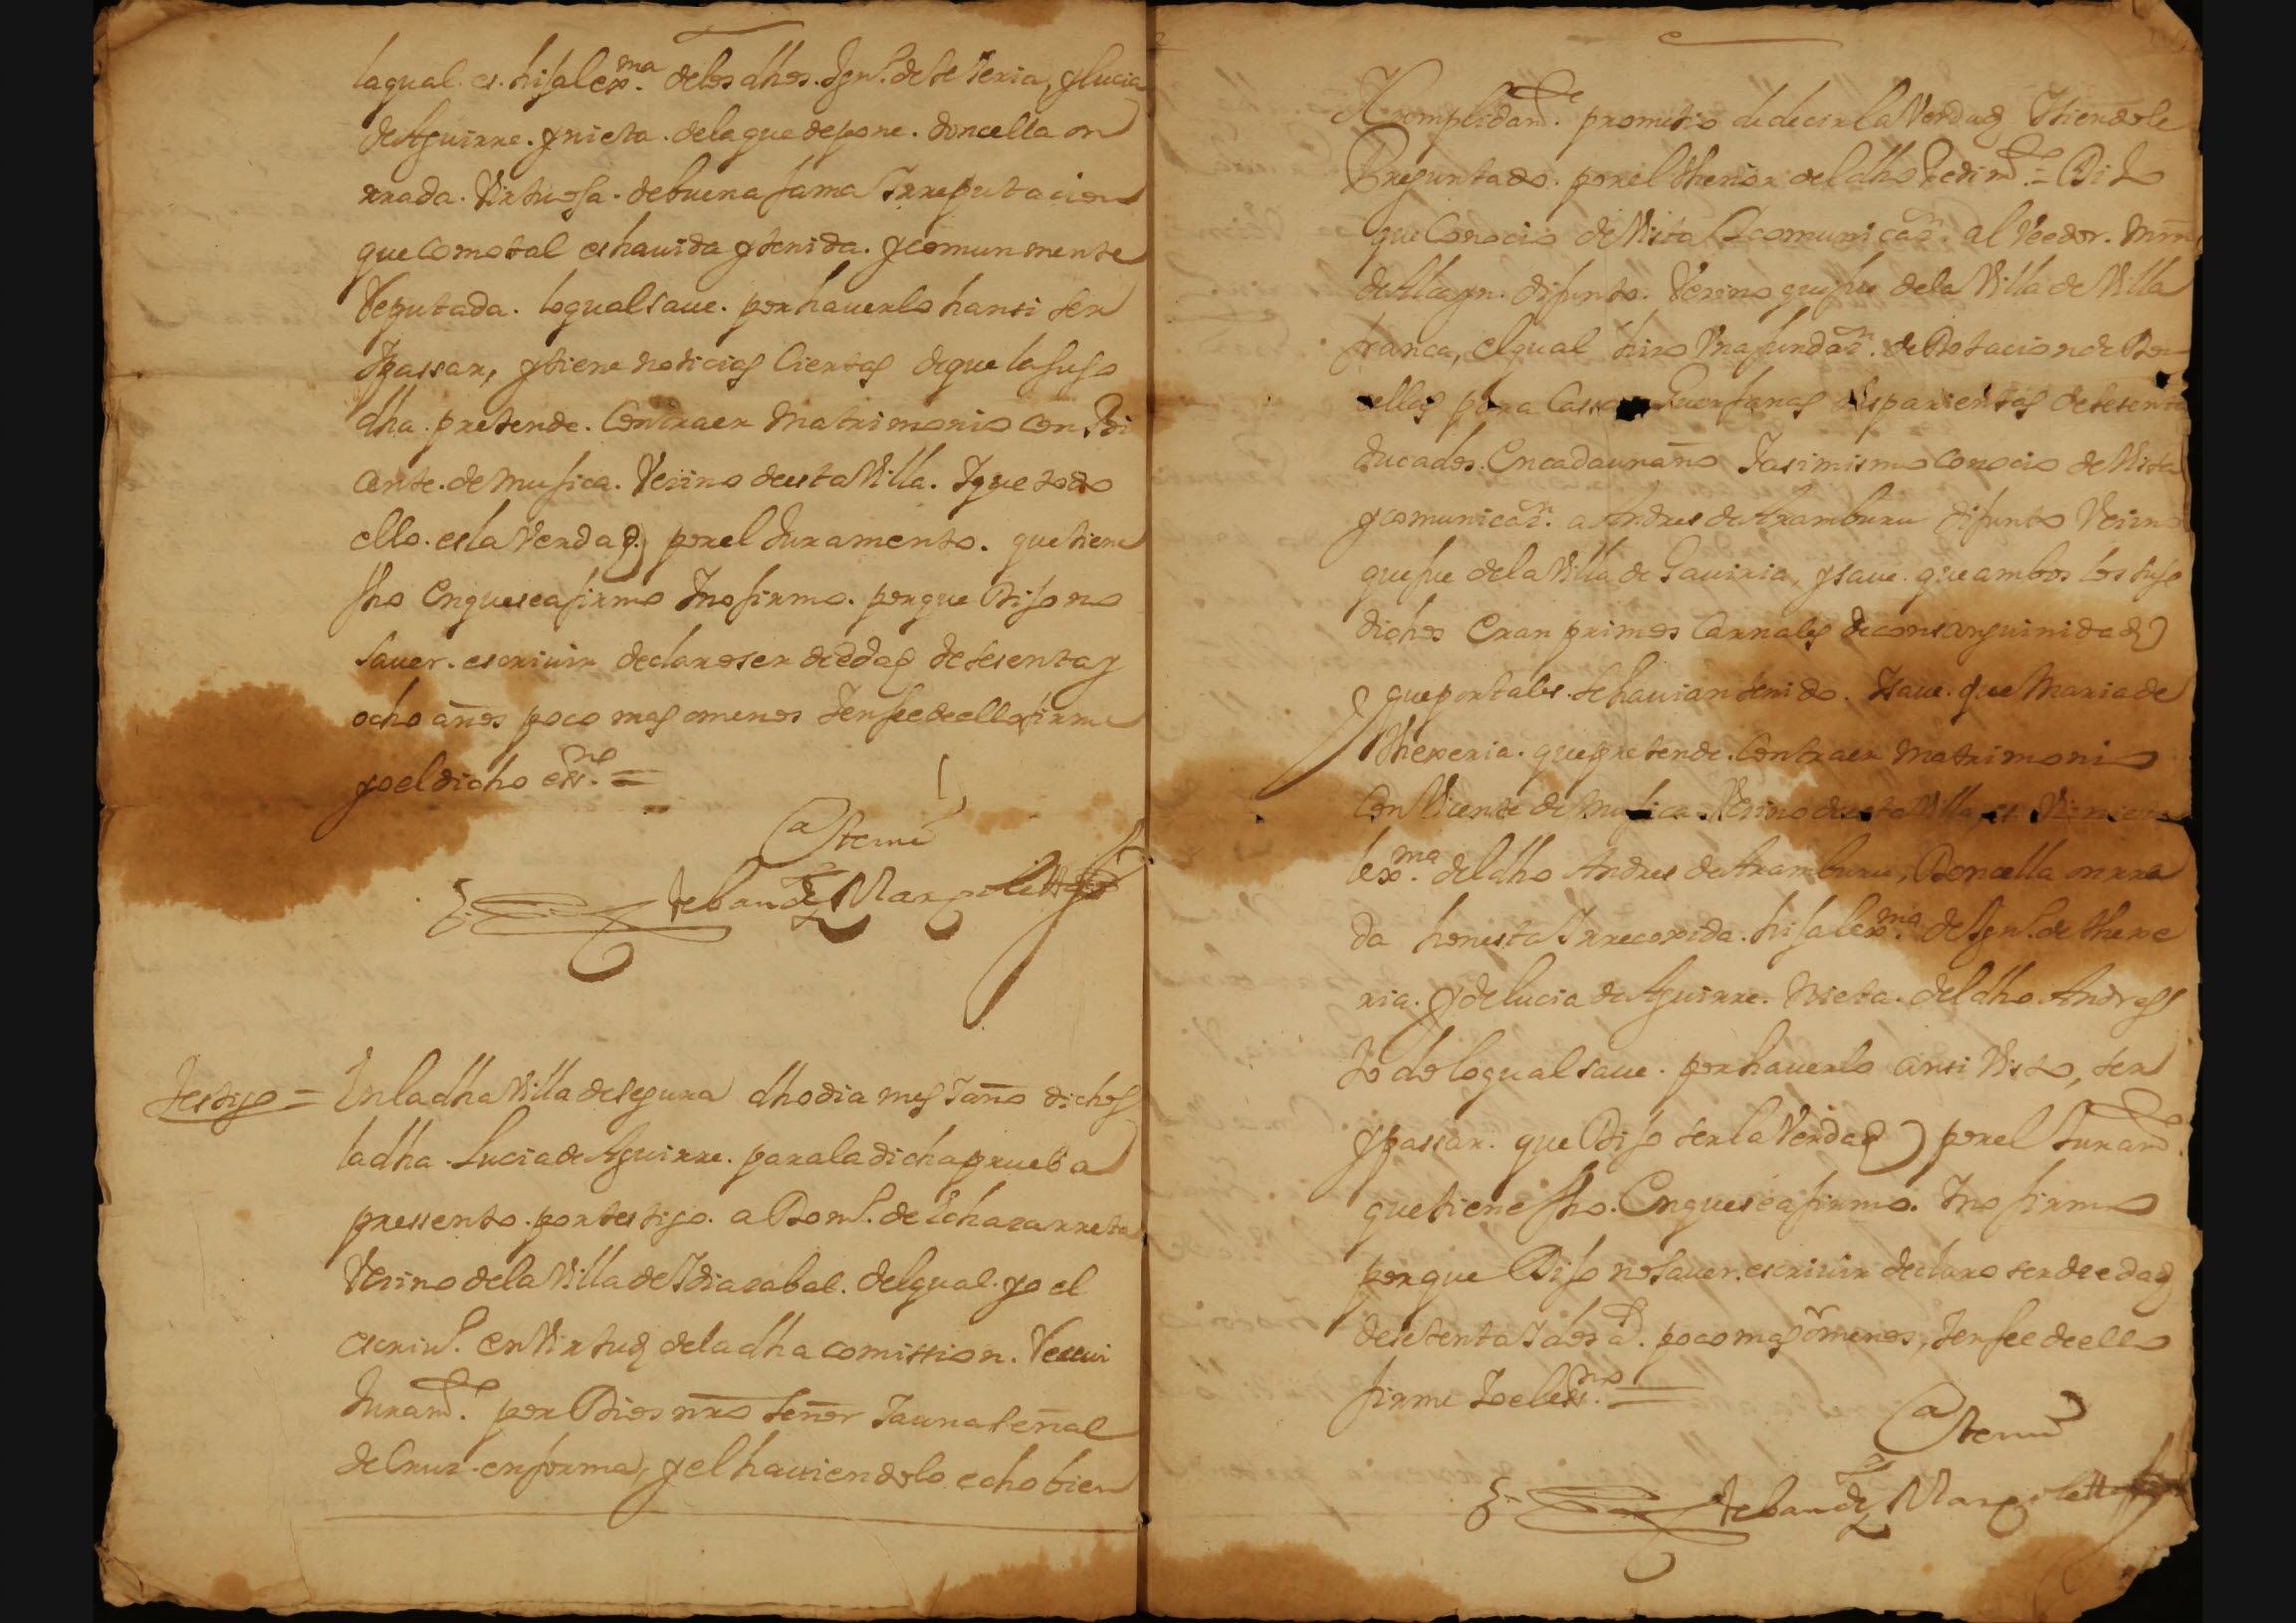 la qual es hija lex.ma de los dhos Ign.o de te xeria, y lucia
de Aguirre. y nieta. de la que depone. doncella on
rrada. Virtuosa. de buena fama Y rreputacion
que como tal es hauida y tenida. y comun mente
Reputada. lo qual saue. por hauerlo hansi ser
Y passar, y tiene noticias Ciertas de que la suso
dha. pretende. Contraer Matrimonio con Bi
cente. de Musica. Vezino desta Villa. Y que todo
ello. es la Verdad por el Juramento. que tiene
fho En que se afirmo Y no firmo. porque Dijo no
sauer. escriuir declaro ser de edad de sesenta y
ocho años poco mas o menos Y en fee de ello firme
yo el dicho ess.no =
Ante mi
Esteban de Margolles
Testigo = En la dha Villa de Segura dho dia mes Y año dichos
la dha. Lucia de Aguirre. para la dicha prueba
pressento. por testigo. a Dom.o de Echazarreta
Vezino de la Villa de Ydiazabal. del qual. yo el
escriu.o en Virtud de la dha comission. Reciui
Juram.to por Dios nro Señor Y a una señal
de Cruz. en forma, y el hauiendolo echo bien
Y complidam.te promitio de decir la Verdad Y siendole
Preguntado. por el thenor del dho Pedim.to = Dijo
que Conocio de Vista Y comunicaz.n al Veedor. Mrn
de difunto. Vezino que fue de la Villa de Villa
franca, el qual hizo Una fundaz.n de Dotacion de Don
cellas para Cassar Huerfanas sus parientas de sesenta
ducados. En cada un año Y asimismo conocio de Vista
y comunicaz.n a Andres de Aramburu difunto Vezino
que fue de la Villa de Gauiria, y saue. que ambos los suso
dichos Eran primos Carnales de consanguinidad
y que por tales. se hauian tenido. Y saue. que Maria de
thexeria. que pretende. Contraer Matrimonio
Con Vicente de Musica Vezino desta Villa, es Visnieta
lex.ma del dho Andres de Aramburu, Doncella onrra
da honesta Y rrecoxida. hija lex.ma de Ign.o de thexe
ria. y de lucia de Aguirre. Nieta. del dho. Andres
todo lo qual saue. por hauerlo ansi Visto, ser
y passar. que Dijo ser la Verdad por el Juram.to
que tiene fho. En que se afirmo. Y no firmo
porque Dijo no sauer. escriuir declaro ser de edad
de setenta Y dos a.s poco mas o menos, Y en fee de ello
firme Yo el ess.no =
Ante mi
Esteban de Margolles